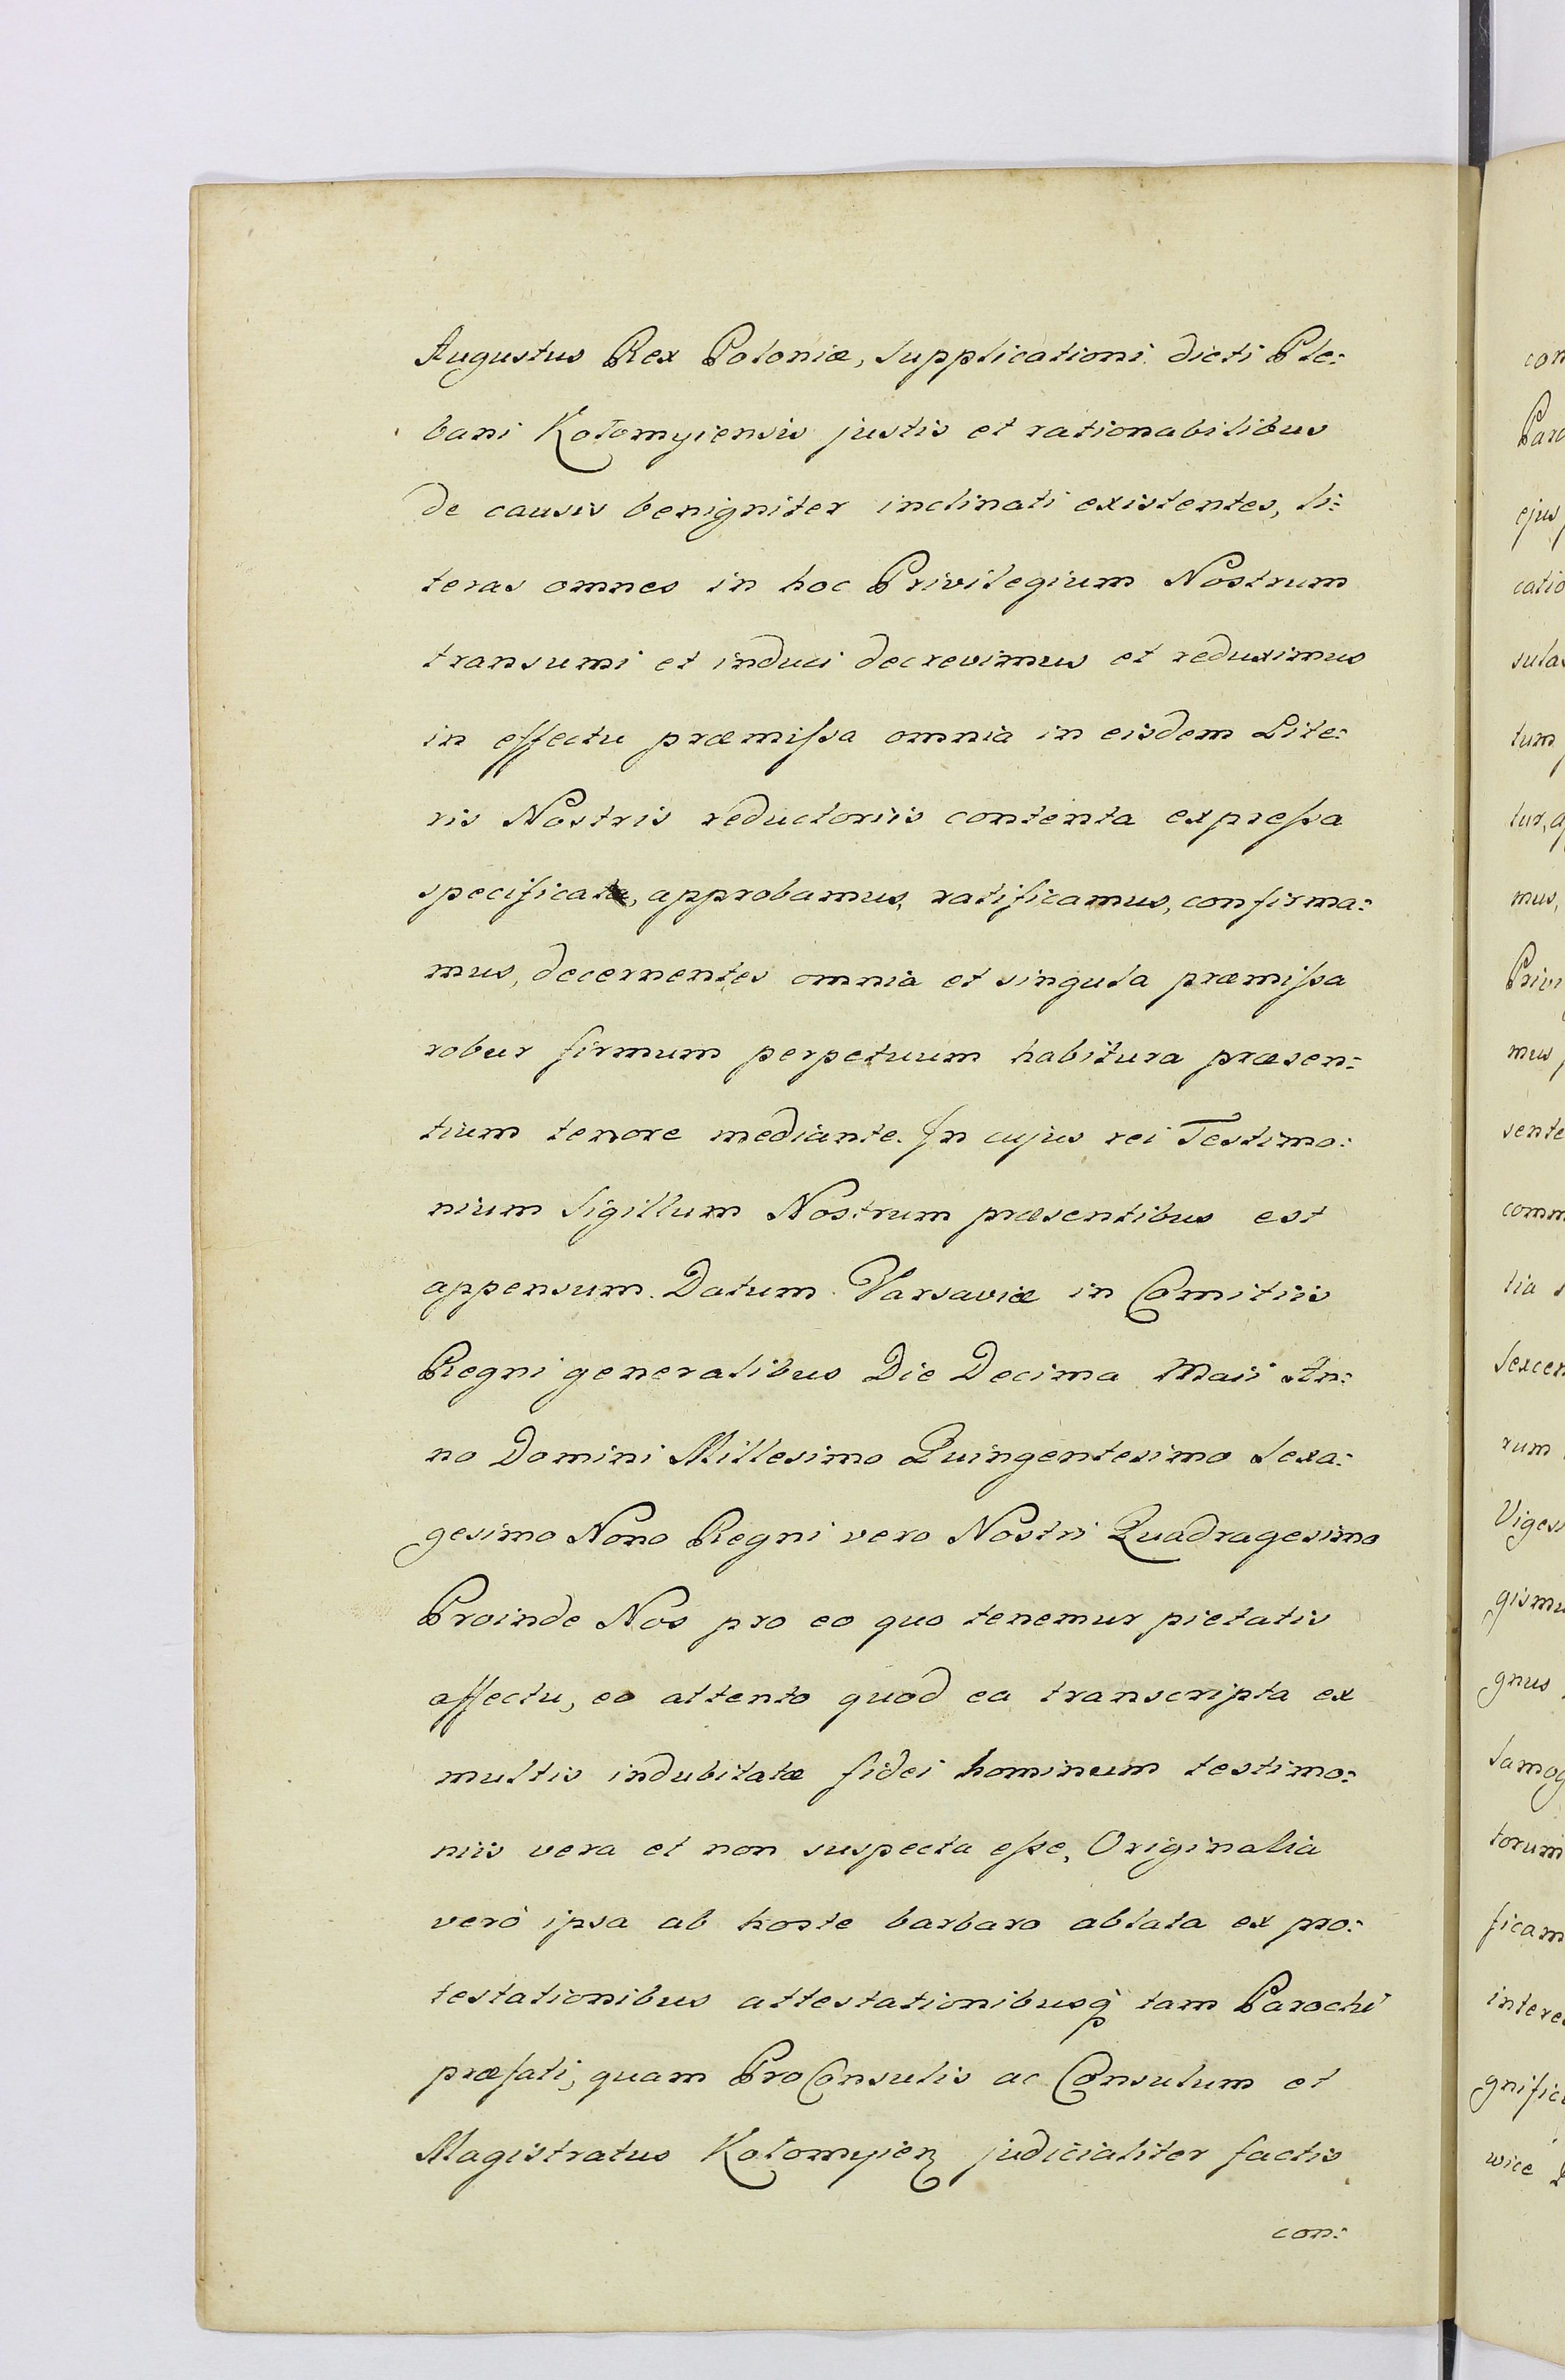 Augustus Rex Poloniæ, supplicationi dicti Ple:
bani Kołomyiensis justis et rationabilibus
de causis benigniter inclinati existentes, li:
teras omnes in hoc Privilegium Nostrum
transumi et induci decrevimus et reduximus
in effectu præmiſsa omnia in eisdem Lite:
ris Nostris reductoriis contenta expreſsa
specificata, approbamus, ratificamus, confirma:
mus, decernentes omnia et singula præmiſsa
robur firmum perpetuum habitura præsen:
tium tenore mediante. In cujus rei Testimo:
nium Sigillum Nostrum præsentibus est
appensum. Datum Varsaviæ in Comitiis
Regni generalibus Die Decima Maii An:
no Domini Millesimo Quingentesimo Sexa:
gesimo Nono Regni vero Nostri Quadragesimo
Proinde Nos pro eo quo tenemur pietatis
affectu, eo attento quod ea transcripta ex
multis indubitatæ fidei hominum testimo:
niis vera et non suspecta eſse, Originalia
verò ipsa ab hoste barbaro ablata ex pro:
testationibus attestationibusq̀ tam Parochi
præfati, quam ProConsulis ac Consulum et
Magistratus Kołomyien judicialiter factis
con:
con
Paro
ejus
catio
sula
tum
tur, a
mus,
Privi
mus
sente
comm
lia s
Sexcen
rum
Viges
gismu
gnus
Samog
torum
ficam
intere
gnific
wice